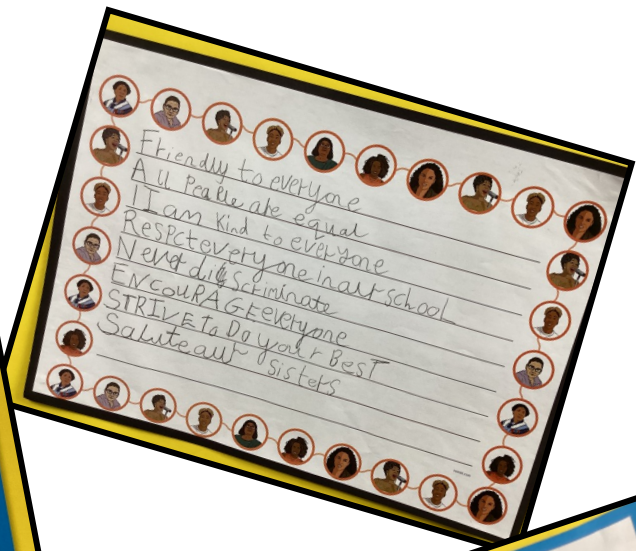 Friendly to everyone
All people are equal
I I am kind to everyone
Respct every one in our school
Never discriminate
ENCOURAGE everyone
STRIVE to Do your BesT
Salute our sisters